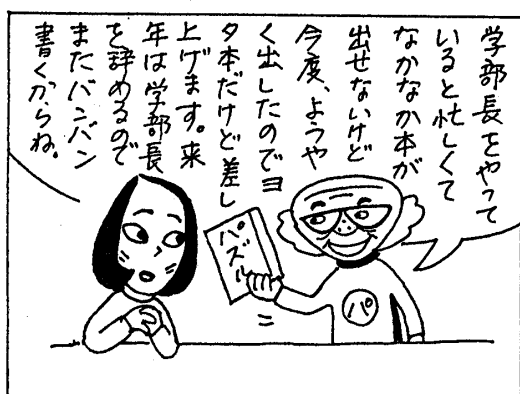 学部長をやって
いると忙しくて
なかなか本が
出せないけど
今度、ようや
く出したのでヨ
タ本だけど差し
上げます。来
年は学部長
を辞めるので
またバンバン
書くからね。
パズル
パ